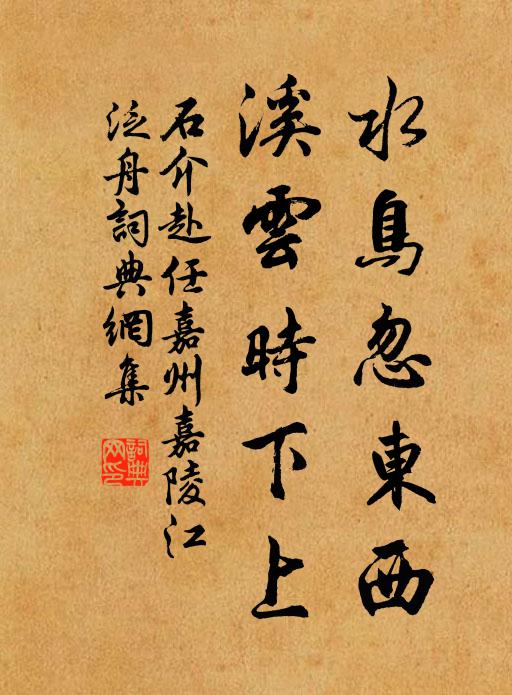 水鳥忽東西
溪雲時下上
石介赴任嘉州嘉陵江
泛舟詞典網集
詞典
网印